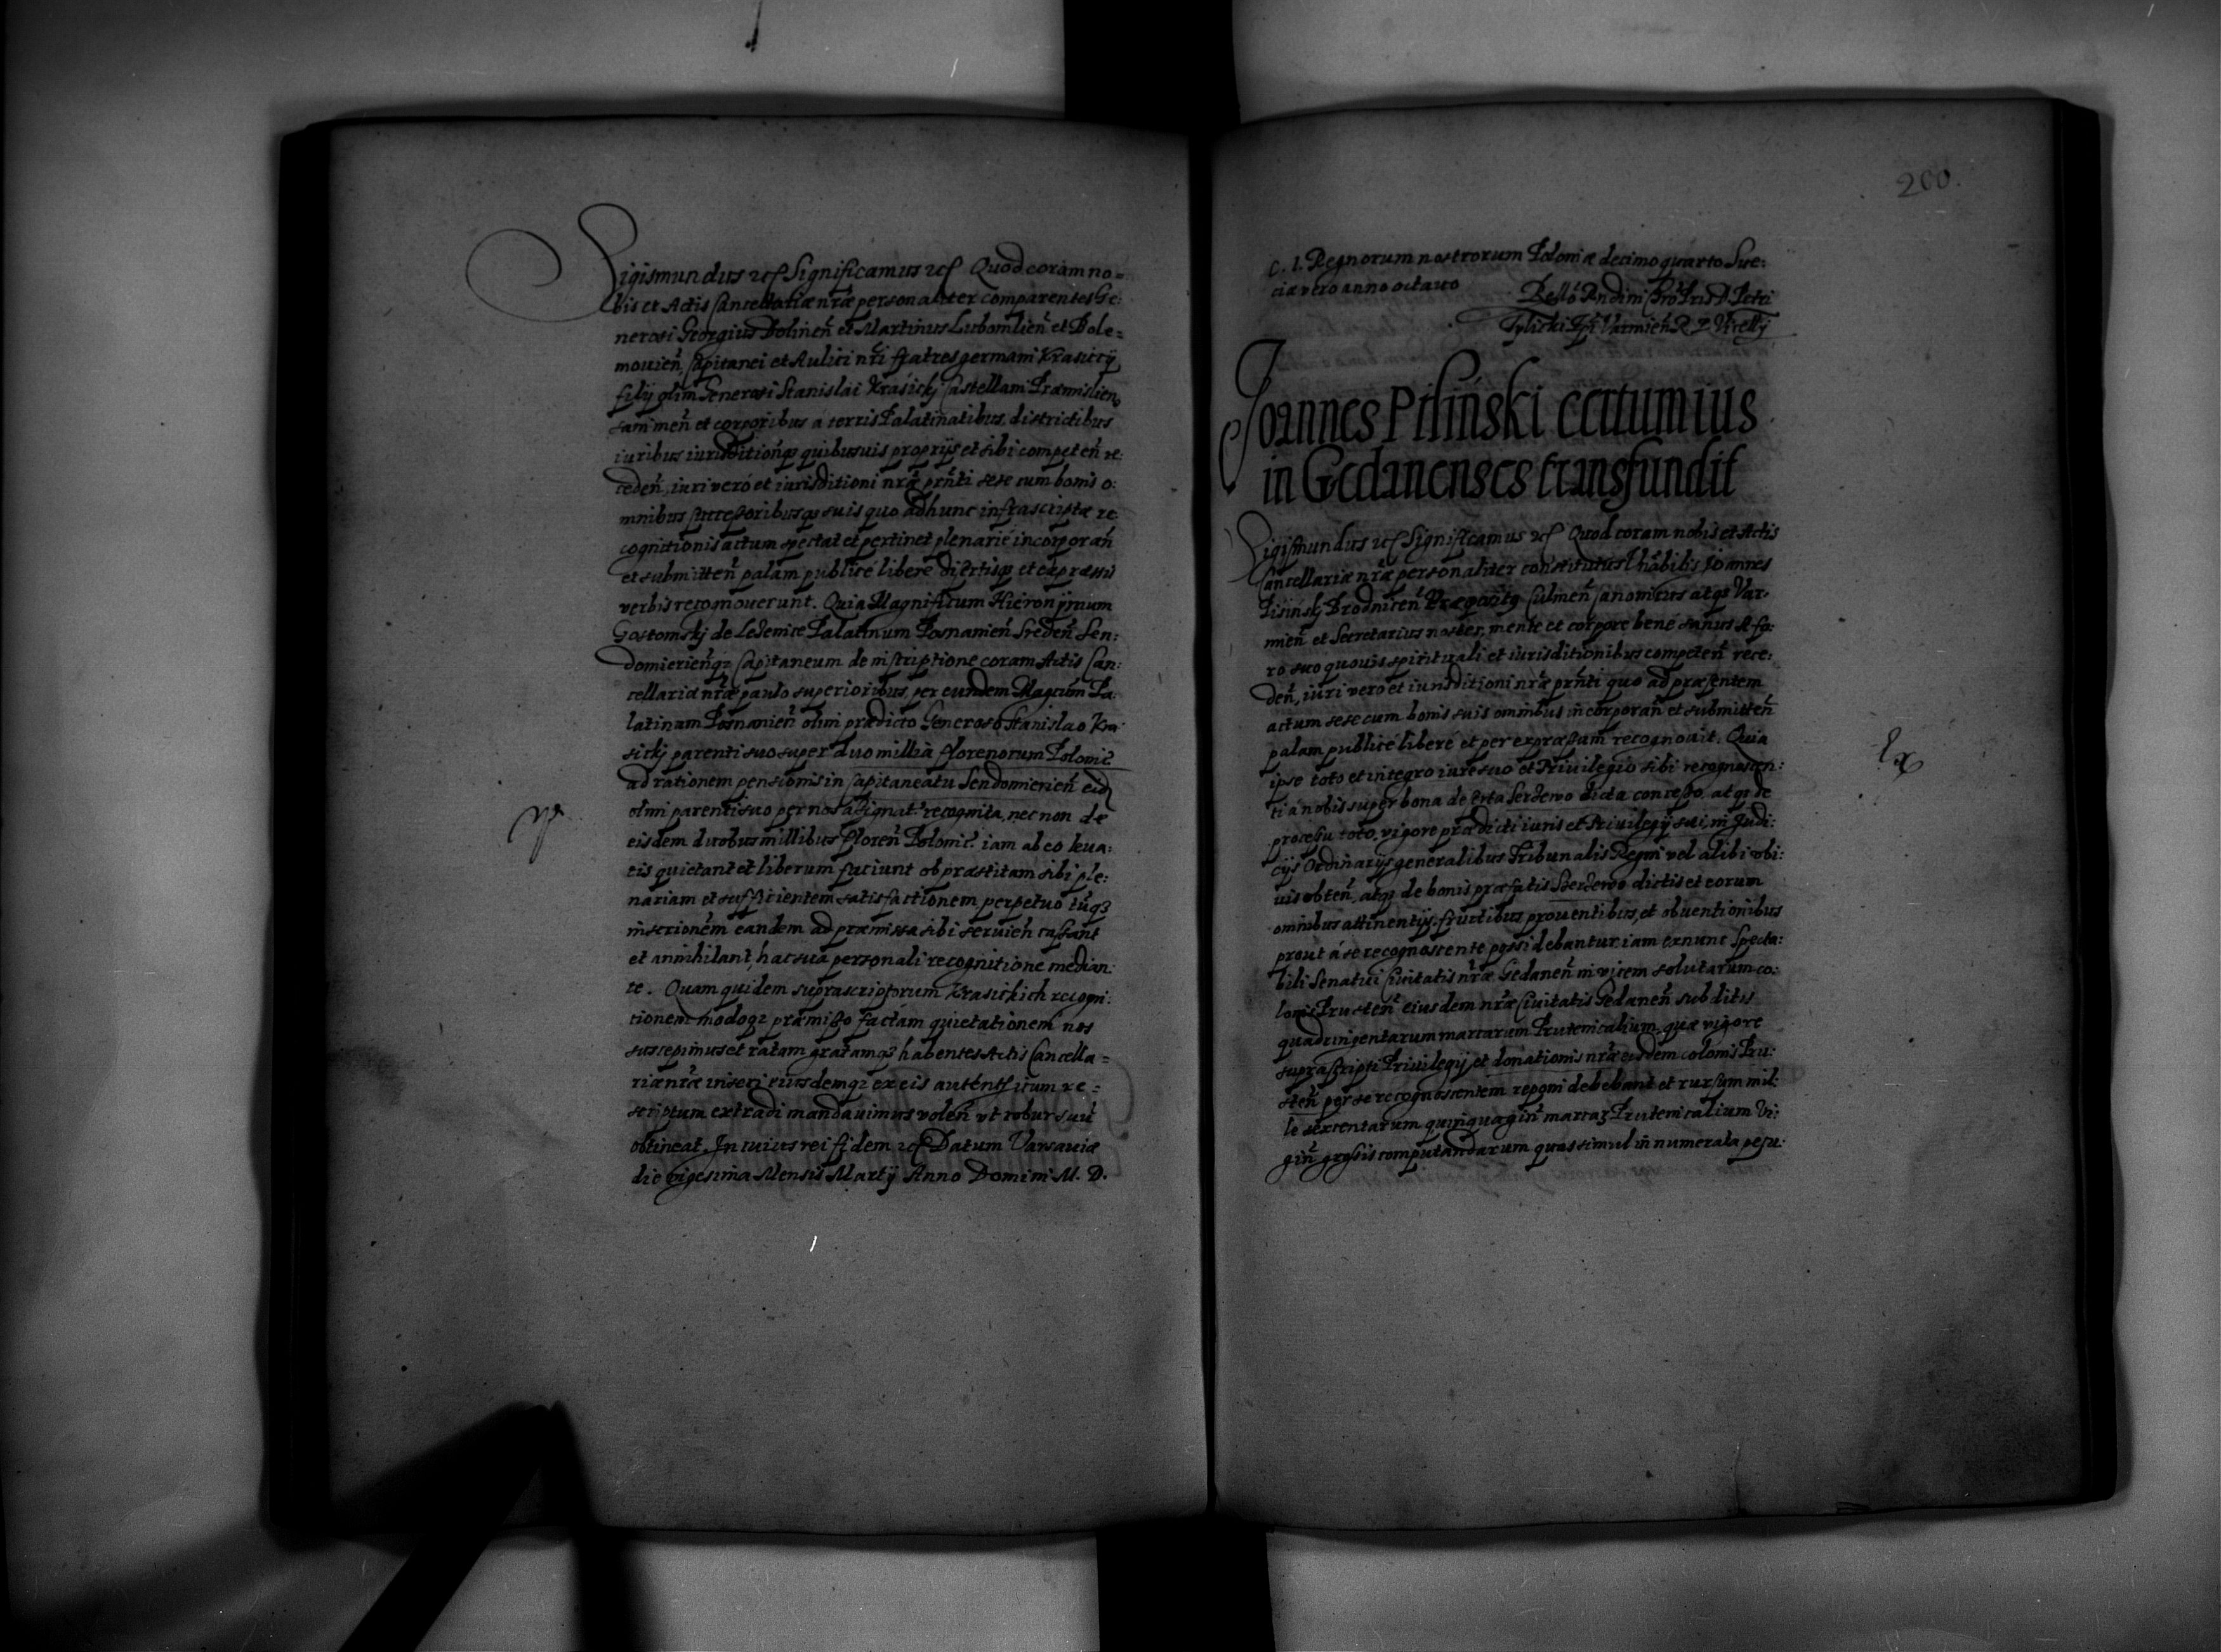 Sigismundus etc Significamus etc Quod coram no=
bis et Actis Cancellariæ nr̃æ personaliter comparentes Ge:
nerosi Georgius Dolineñ et Martinus Lubomlieñ et Bole=
mouieñ, Capitanei et Aulici nr̃i fratres germani Krasiccÿ
filÿ olim Generosi Stanislai Krasickj Castellani Præmislien
sani meñ et corporibus á terris Palatinatibus, districtibus
iuribus iurisditioñqȝ quibusuis proprijs et sibi competeñ re:
cedeñ, iuri veró et iurisditioni nr̃æ prñti sese cum bonis o:
mnibus successoribusqȝ suis quo ad hunc infrascriptæ re
cognitionis actum spectat et pertinet plenarié incorporañ
et submitteñ palam publicé liberé disertisqȝ et expræssis
verbis recognouerunt. Quia Magnificum Hieronÿmum
Gostomskj de Lezenice Palatinum Posnanieñ Sredeñ Sen:
domierieñqȝ Capitaneum de inscriptione coram Actis Can:
cellariæ nr̃æ paulo superioribus, per eundem Magcum Pa
latinum Posnanieñ olim prædicto Generoso Stanislao Kra
sickj parenti suo super duo millia florenorum Polonic
ad rationem pensionis in Capitaneatu Sendomierieñ eid
olim parenti suo per nos assignat. recognita, nec non de
eisdem duobus millibus floreñ Polonic. iam ab eo leua:
tis quietant et liberum faciunt ob præstitam sibi ple:
nariam et sufficientem satisfactionem perpetuo
inscrionem eandem ad præmissa sibi seruieñ cassant
et annihilant, hac sua personali recognitione median:
te. Quam quidem suprascriptorum Krasickich recogni:
tionem modoqȝ præmisso factam quietationem nos
suscepimus et ratam gratamqȝ habentes Actis Cancella=
riæ nr̃æ inseri eiusdemqȝ ex eis autenticum re=
scriptum extradi mandauimus voleñ vt robur suũ
obtineat. In cuius rei fidem etc Datum Varsauiæ
die vigesima Mensis Martij Anno Domini M. D.
200.
C. I. Regnorum nostrorum Poloniæ decimoquarto Sue:
ciæ vero anno octauo
Tylicki Epi Varmieñ R P
Joannes Piliński certum ius
in Gedanenses transfundit
Sigismundus etc Significamus etc Quod coram nobis et Actis
Cancellariæ nr̃æ personaliter constitutus Joannes
Culmeñ Canonicus atqȝ Var:
mieñ et Secretarius noster, mente et corpore bené sanus A fo:
ro suo quouis spirituali et iurisditionibus competeñ rece:
deñ, iuri vero et iurisditioni nr̃æ prñti quo ad præsentem
actum sese cum bonis suis omnibus incorporañ et submitteñ
palam publicé liberé et per expræssum recognouit. Quia
ipse toto et integro iure suo et Priuilegio sibi recognoscen:
ti á nobis super bona dicta concesso, atqȝ de
processu toto, vigore prædicti iuris et Priuilegij sui, in Judi:
cijs Ordinarijs generalibus Tribunalis Regni vel alibi vbi:
uis obteñ, atqȝ de bonis præfatis dictis et eorum
omnibus attinentijs, fructibus prouentibus, et obuentionibus
prout á se recognoscente possidebantur, iam ex nunc Specta:
bili Senatui Ciuitatis nr̃æ Gedaneñ in vicem solutarum co:
lonis eiusdem nr̃æ Ciuitatis Gedaneñ subditis
quadringentarum marcarum Prutenicalium, quæ vigore
suprascripti Priuilegij et donationis nr̃æ eisdem colonis Pru:
steñ per se recognoscentem reponi debebant et rursum mil:
le sexcentarum quinquagint marcaȝ Prutenicalium Vi:
gin̄ grossis computandarum quas simul in numerata pecu:
Ex